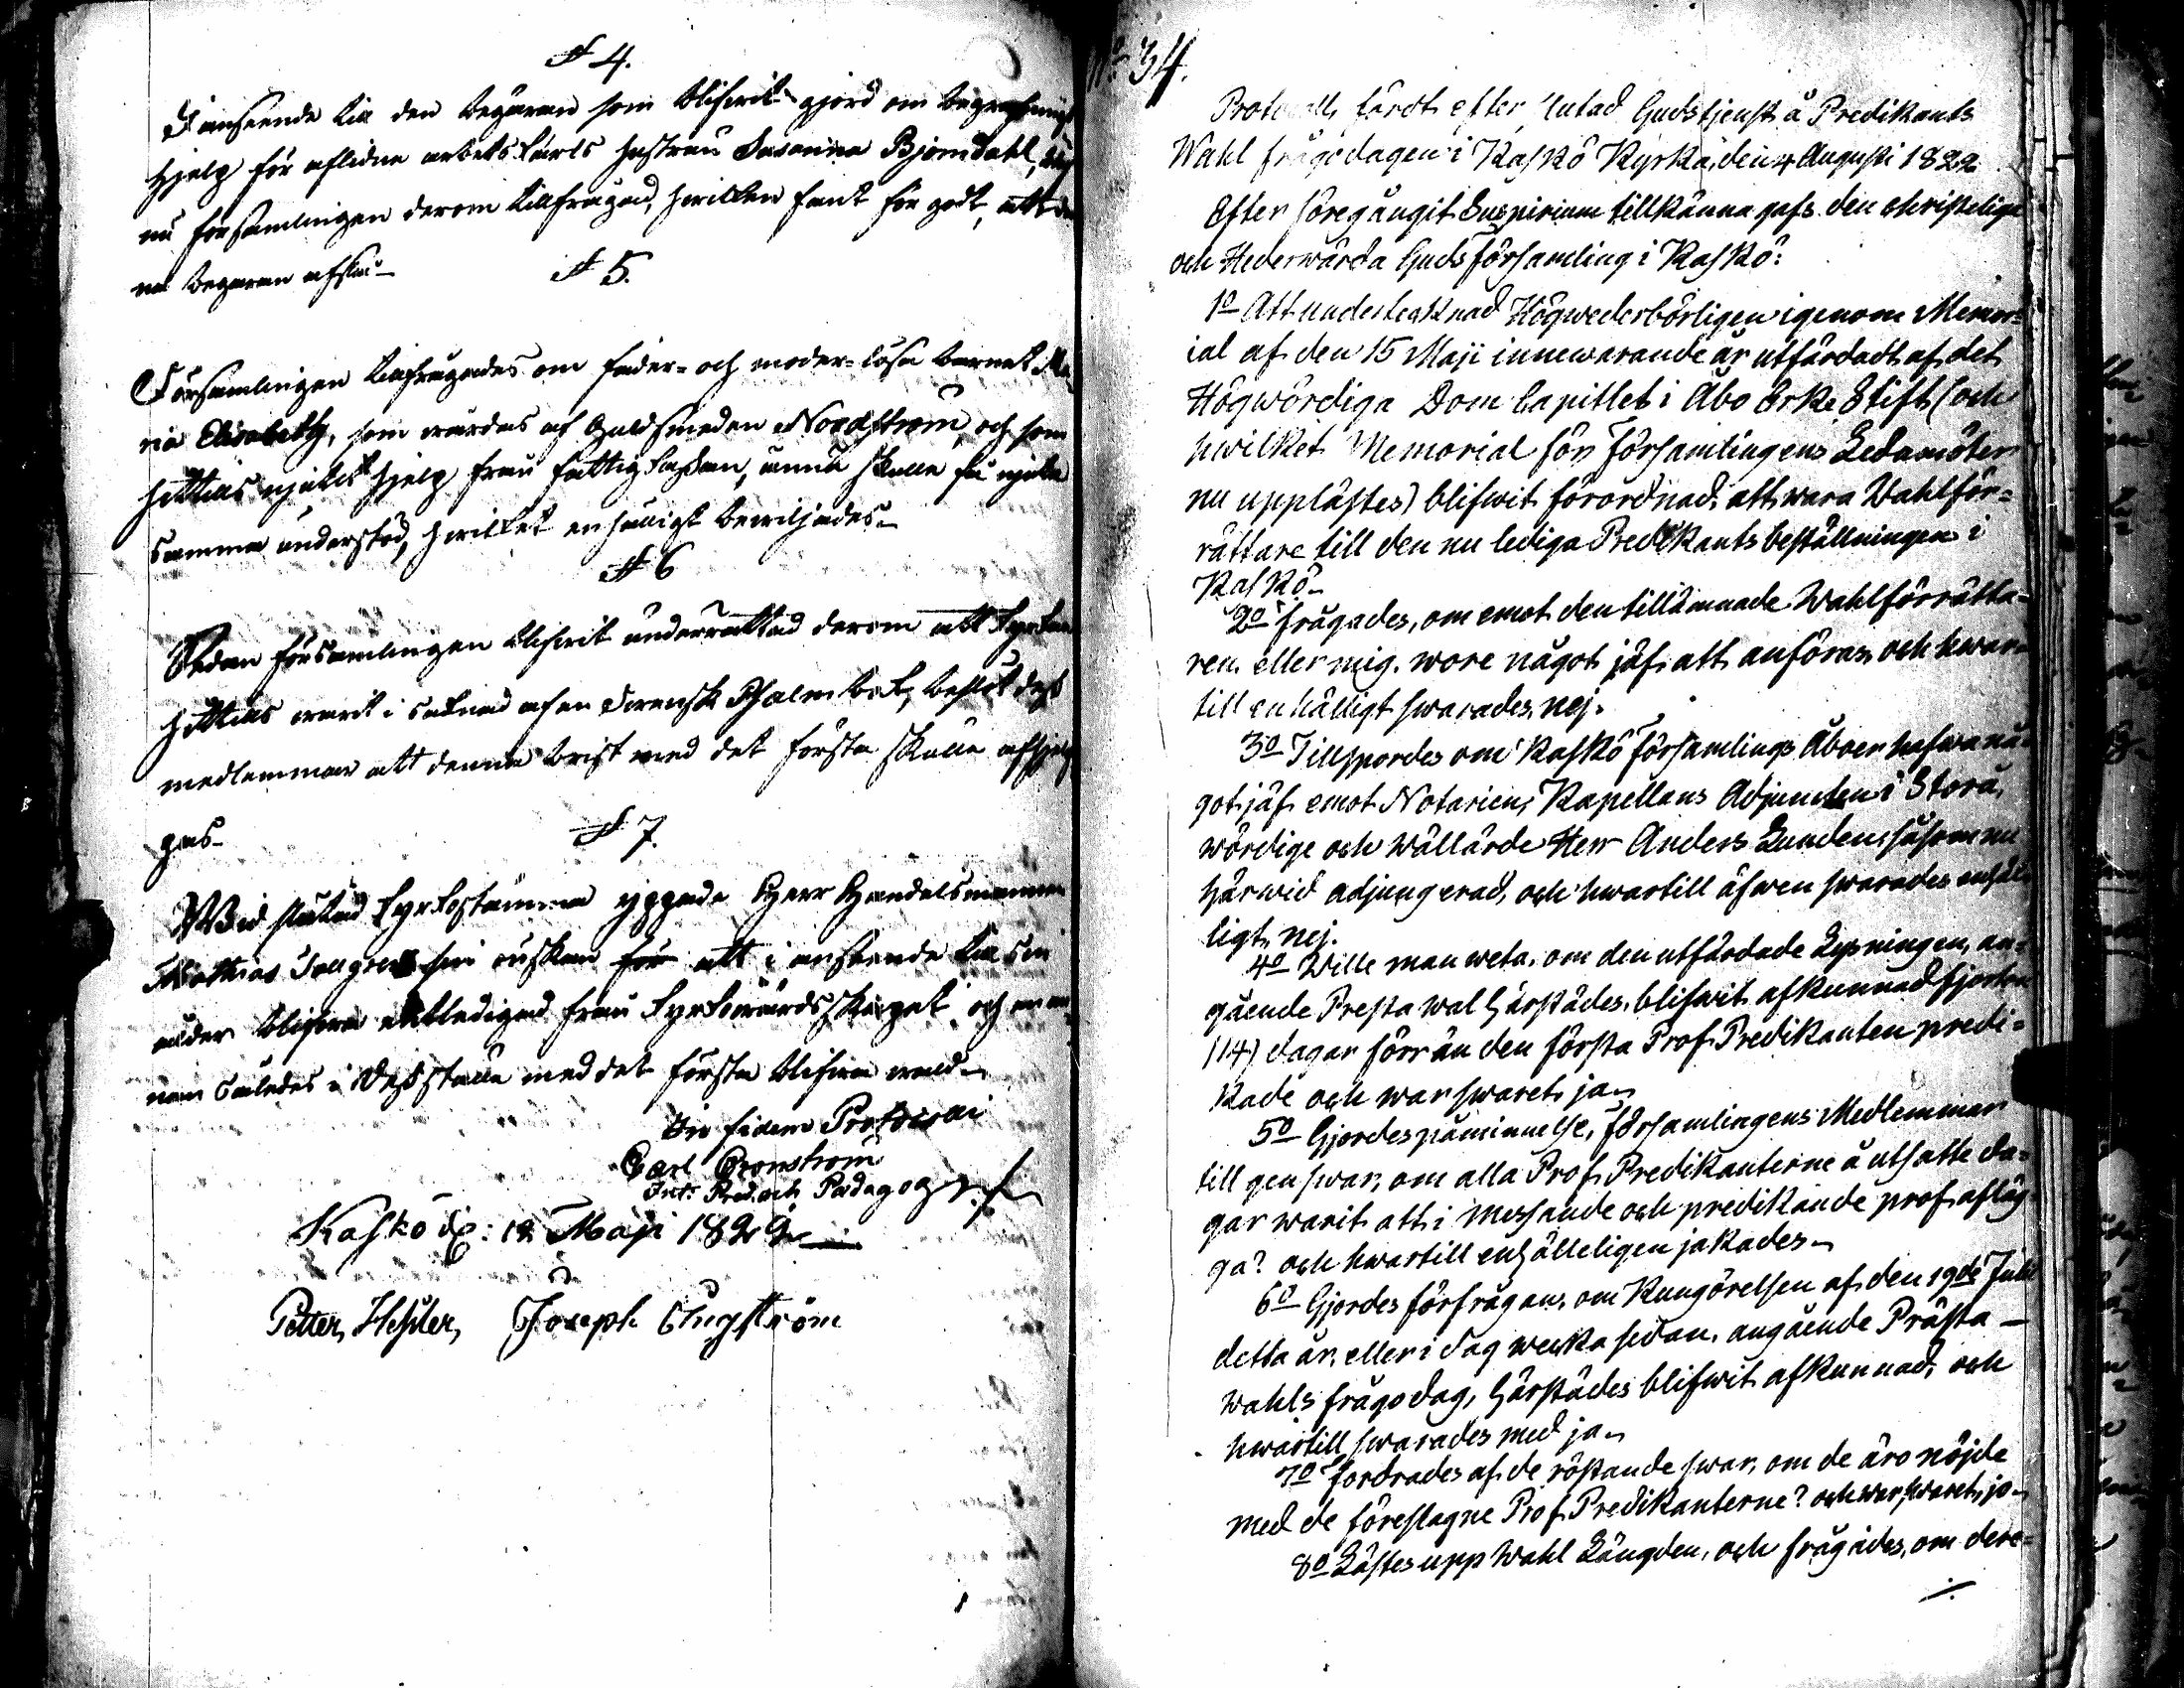 § 4.
I anseende till den begäran som blifwit gjord om begrafnings
hjelp för aflidna arbetskarls hustrun Susanna Björndahl,
nu församlingen derom tillfrågad, hwilken fant för godt, att den
na begäran afslå_
§ 5.
Församlingen tillfrågades om fader- och moder-lösa barnet Ma
ria Elisabeth, som wårdas af Guldsmeden Nordstrom, och som
hittills njutit hjelp från fattig Cassan, ännu skulle få njuta
samma understöd, hwilket enhälligt bewiljades_
§ 6
Sedan församlingen blifwit underrättad derom att Kyrkan
hittills warit i saknad af en Swensk Psalmbok, beslöt dess
medlemmar att denna brist med det första skulle afhjelp
pas_
§ 7.
Wid slutad Kyrkostämma yppade Herr Handelsmannen
Mathias sin önskan för att i anseende till sin
ålder blifwa entledigad från Kyrkowärdsskapet och en an
nan således i dess ställe med det första blifwa wald_
In fidem Protocolli
Carl Cronstrom
Int: Pred. och Pædagog
Kaskö d: 12 Maji 1822
Petter Hessler, Joseph Engström
No 34.
Protocoll, fördt efter slutad Gudstjenst å Predikants
Wahl frågodagen i Kaskö Kyrka, den 4 Augusti 1822
Efter föregångit Suspirium tillkänna gafs den christeliga
och Hederwärda Guds församling i Kaskö:
1o Att undertecknad Högwederbörligen igenom Memor=
ial af den 15 Maji innewarande år utfärdadt af det
Högwördiga Dom Capitlet i Åbo Erke Stift (och
hwilket Memorial för Församlingens Ledamöter
nu upplästes) blifwit förordnad, att wara Wahlför=
rättare till den nu lediga Predikants beställningen i
Kaskö_
2o frågades, om emot den tillämnade Wahlförrätta=
ren eller mig, wore något jäf att anföras, och hwar=
till enhälligt swarades, nej.
3o Tillspordes om Kaskö församlings Åboer hafwa nå=
got jäf emot Notarien, Kapellans Adjuncten i Storå,
wördige och wällärde Herr Anders Lunden, såsom nu
härwid adjungerad, och hwartill äfwen swarades enhäl
ligt, nej.
4o Wille man weta, om den utfärdade Lysningen, an=
gående Presta wal härstädes, blifwit afkunnad fjorton
(14) dagar förrän den första Prof Predikanten predi=
kade och war swaret, ja_
5o Gjordes påminnelse, Församlingens Medlemmar
till genswar, om alla Prof Predikanterne å utsatte da=
gar warit att i messande och predikande prof aflag
ga? och hwartill enhälleligen jakades_
6o Gjordes förfrågan, om Kungörelsen af den 19de Julii
detta år, eller i dag wecka sedan, angående Prästa_
wahls frågodag, härstädes blifwit afkunnad, och
hwartill swarades med ja_
7o fordrades af de röstande swar, om de äro nöjde
med de föreslagne Prof Predikanterne? och war swaret, jo_
8o Lästes upp Wahl Längden, och frågades, om dere=
./.